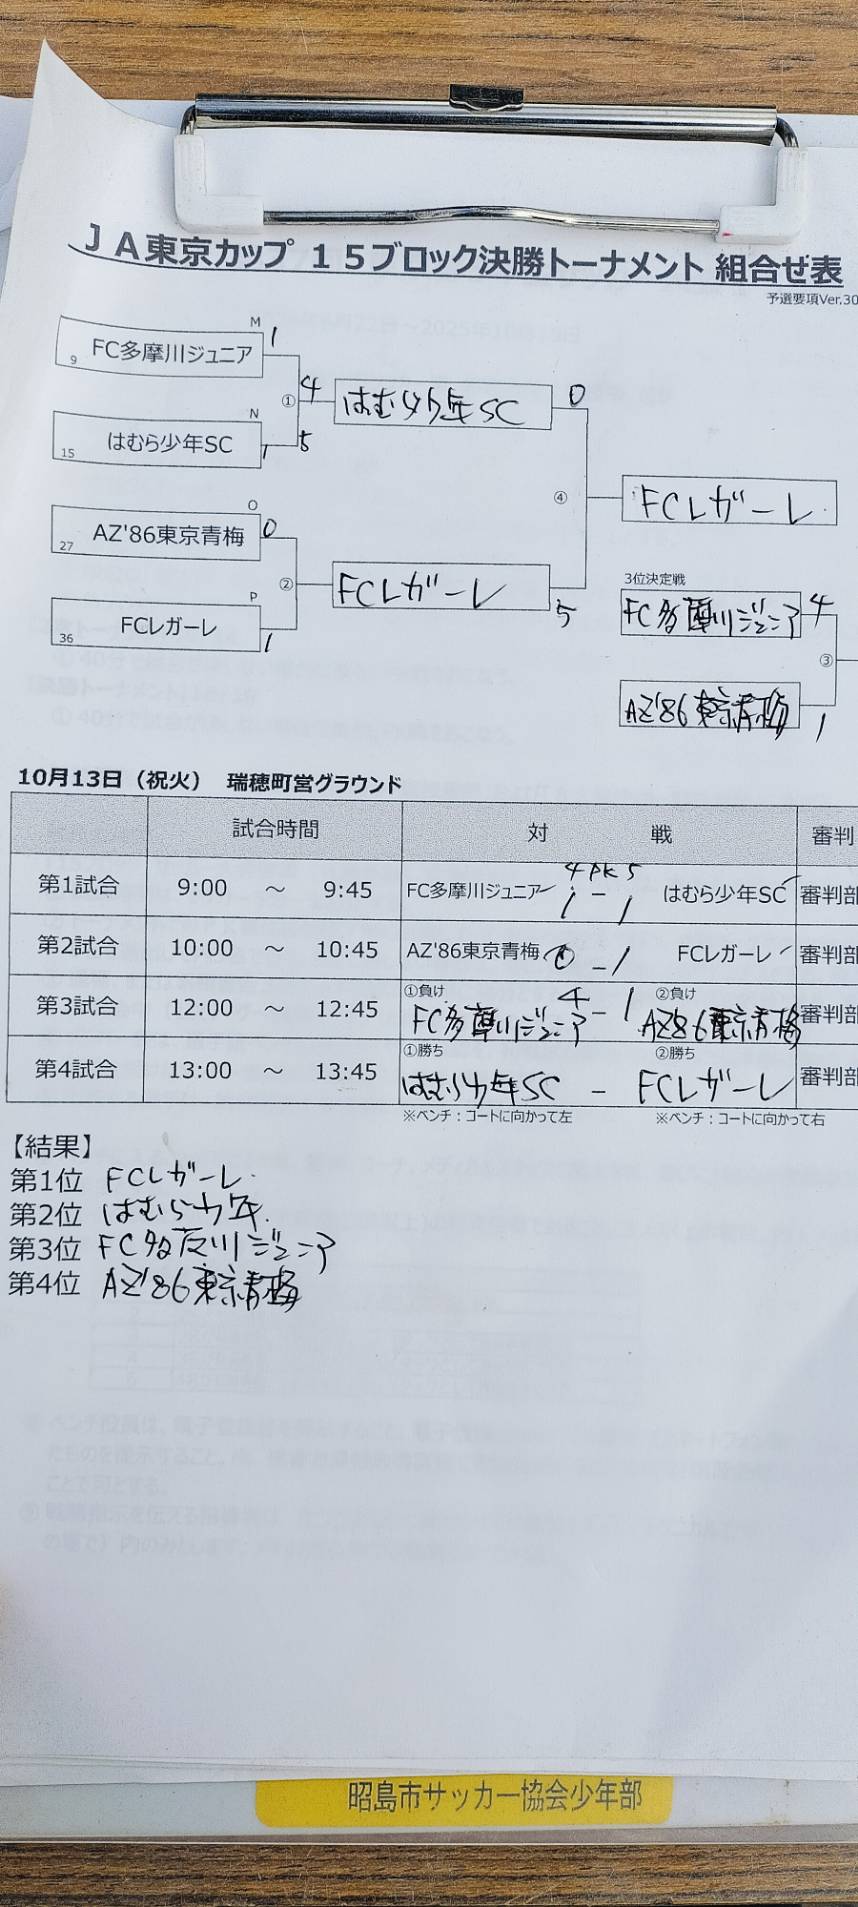 JA東京カップ 15ブロック決勝トーナメント 組合せ表
予選要項Ver.30
M
9 FC多摩川ジュニア 1
① 4 はむら少年SC 0
N
15 はむら少年SC 1 5
④ FCレガーレ
O
27 AZ'86東京青梅 0
② FCレガーレ 5
P
36 FCレガーレ 1
3位決定戦
FC多摩川ジュニア 4
③
AZ'86東京青梅 1
10月13日(祝火) 瑞穂町営グラウンド
試合時間 対 戦 審判
4 PK 5
第1試合 9:00 ～ 9:45 FC多摩川ジュニア 1 - 1 はむら少年SC 審判部
第2試合 10:00 ～ 10:45 AZ'86東京青梅 0 - 1 FCレガーレ 審判部
①負け ②負け
第3試合 12:00 ～ 12:45 FC多摩川ジュニア 4 - 1 AZ'86東京青梅 審判部
①勝ち ②勝ち
第4試合 13:00 ～ 13:45 はむら少年SC - FCレガーレ 審判部
※ベンチ：コートに向かって左 ※ベンチ：コートに向かって右
【結果】
第1位 FCレガーレ
第2位 はむら少年
第3位 FC多摩川ジュニア
第4位 AZ'86東京青梅
昭島市サッカー協会少年部